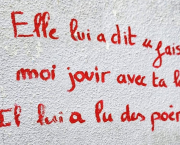 Elle lui a dit "fais
moi jouir avec ta l
Il lui a lu des poèm